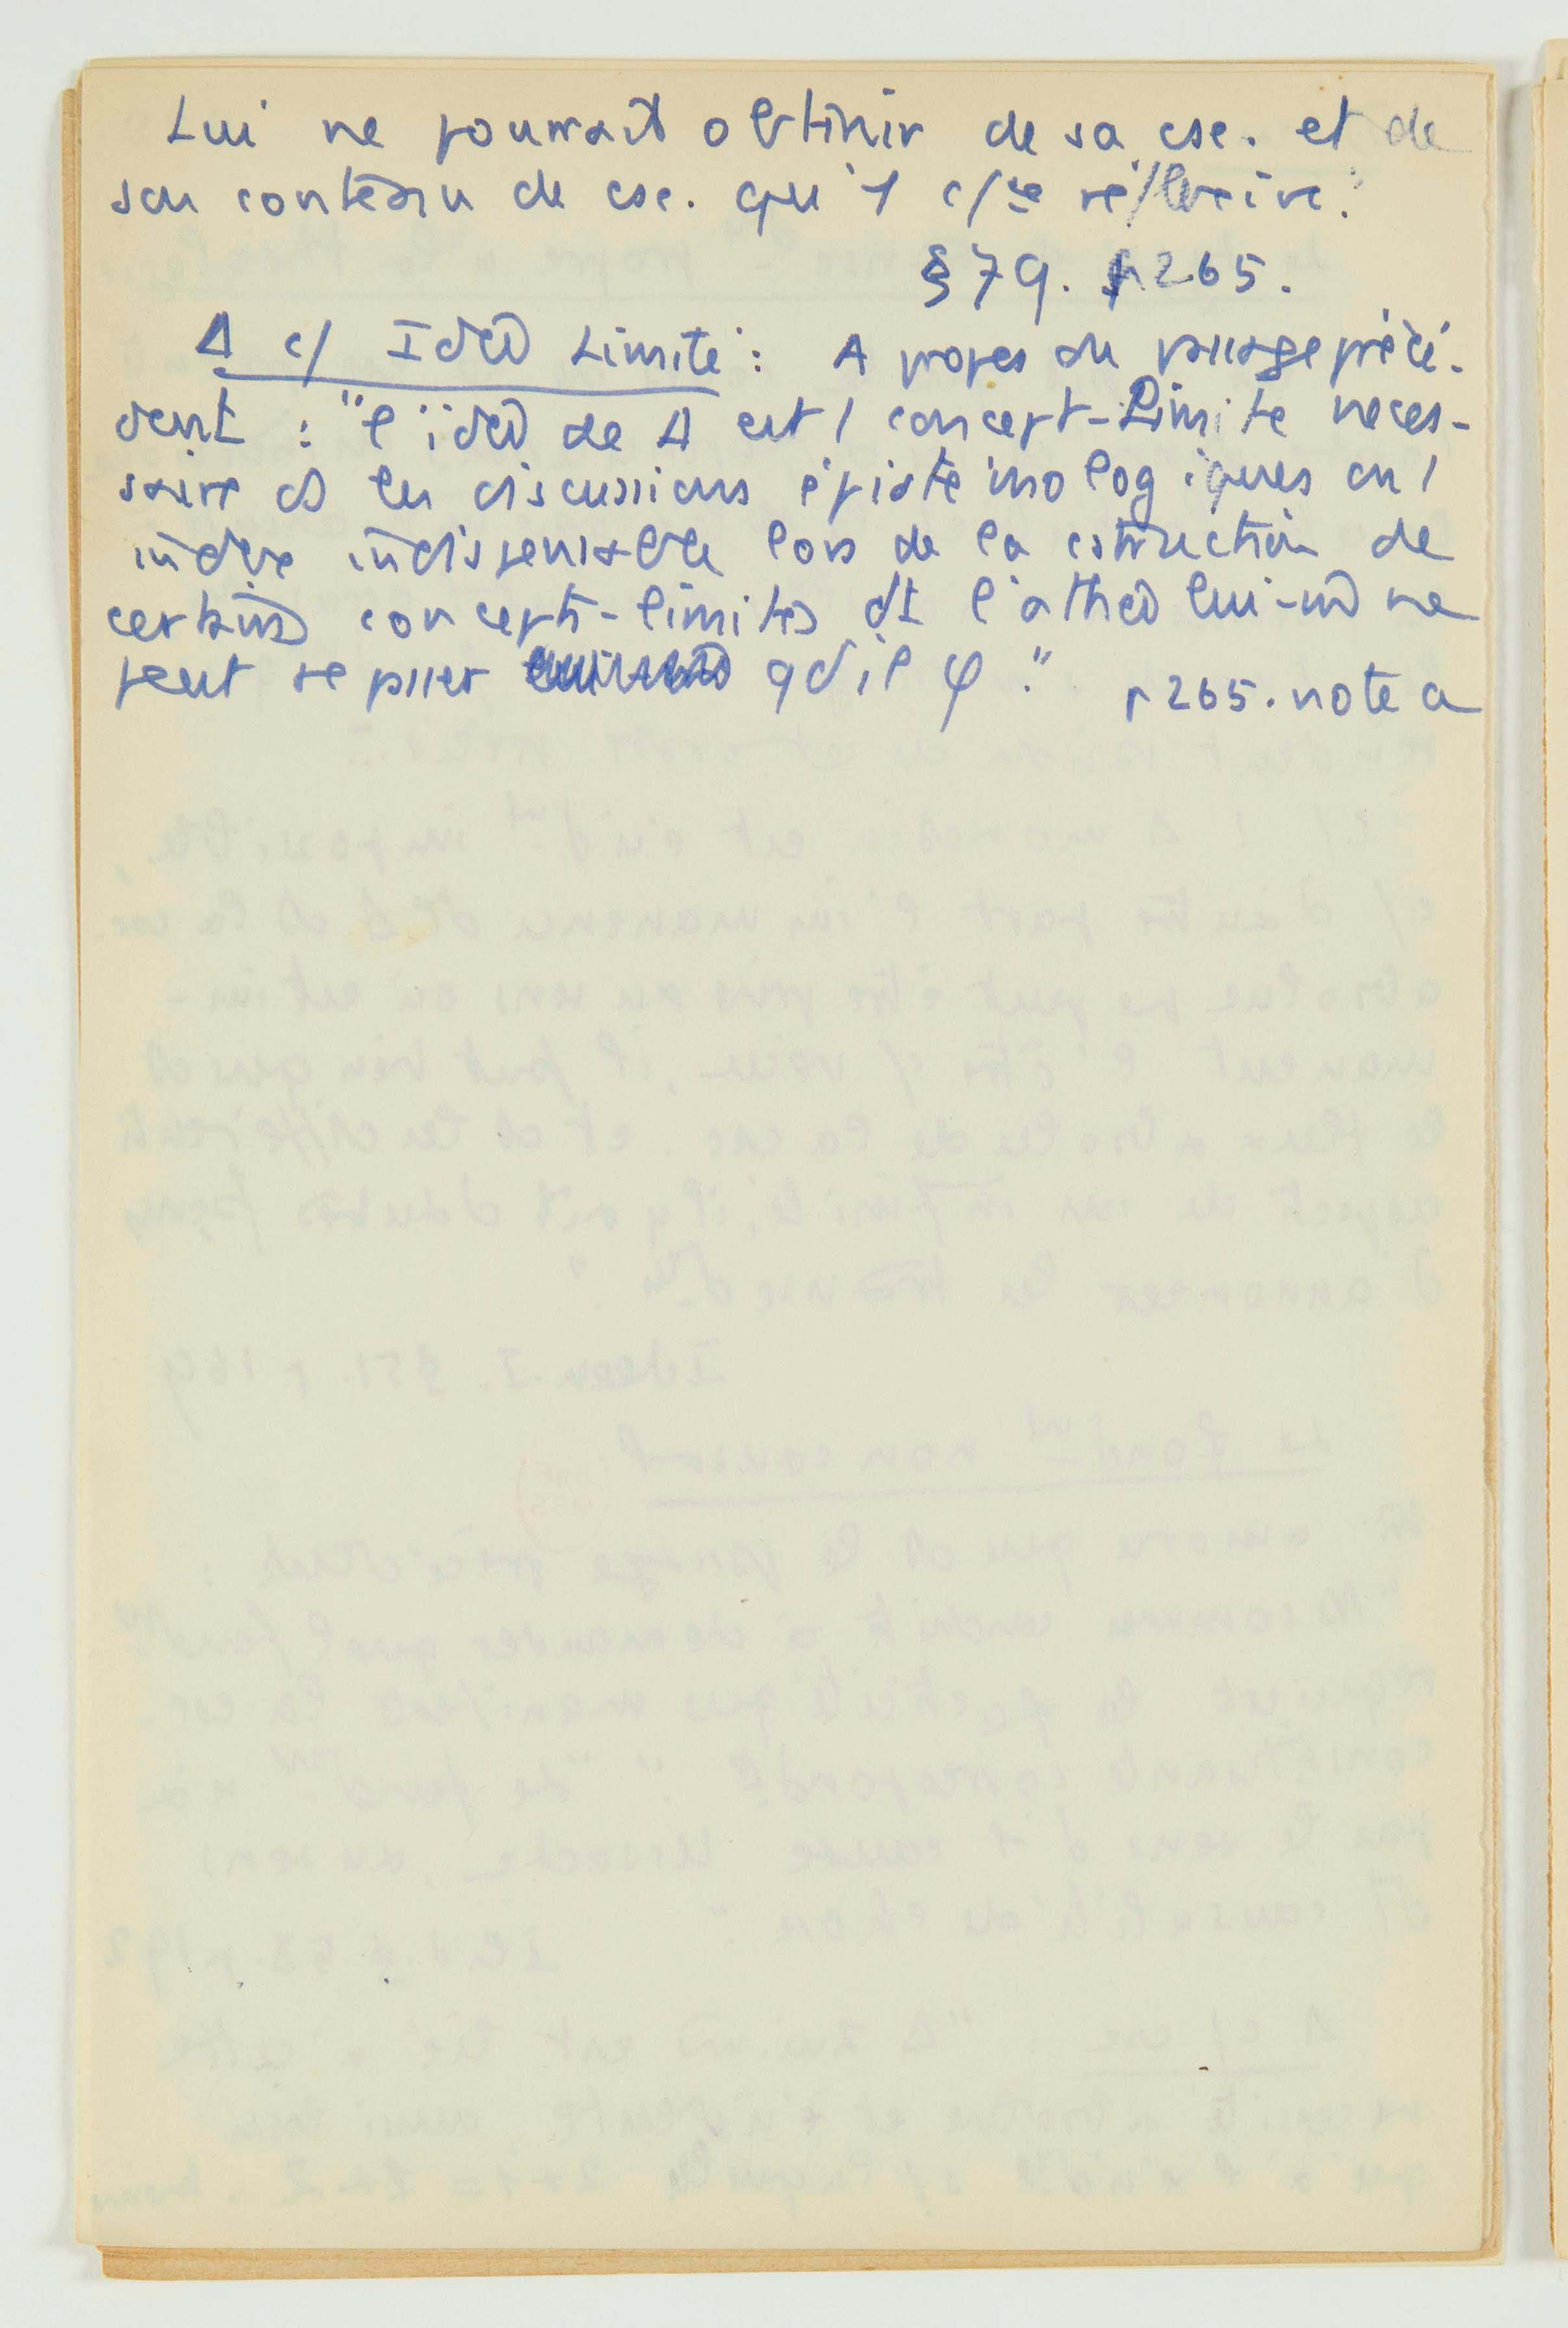 Lui ne pourrait obtenir de sa csc. et de
son contenu de csc. qu'1 c/ce réflexive."
§79. p 265.
Δ c/ Idée Limite : A propos du passage précé-
dent : "l'idée de Δ est 1 concept-limite néces-
saire ds les discussions épistémologiques ou 1
index indispensable lors de la cstruction de
certains concepts-limites dt l'athée lui-m ne
peut se passer qd il φ."
p 265. note a